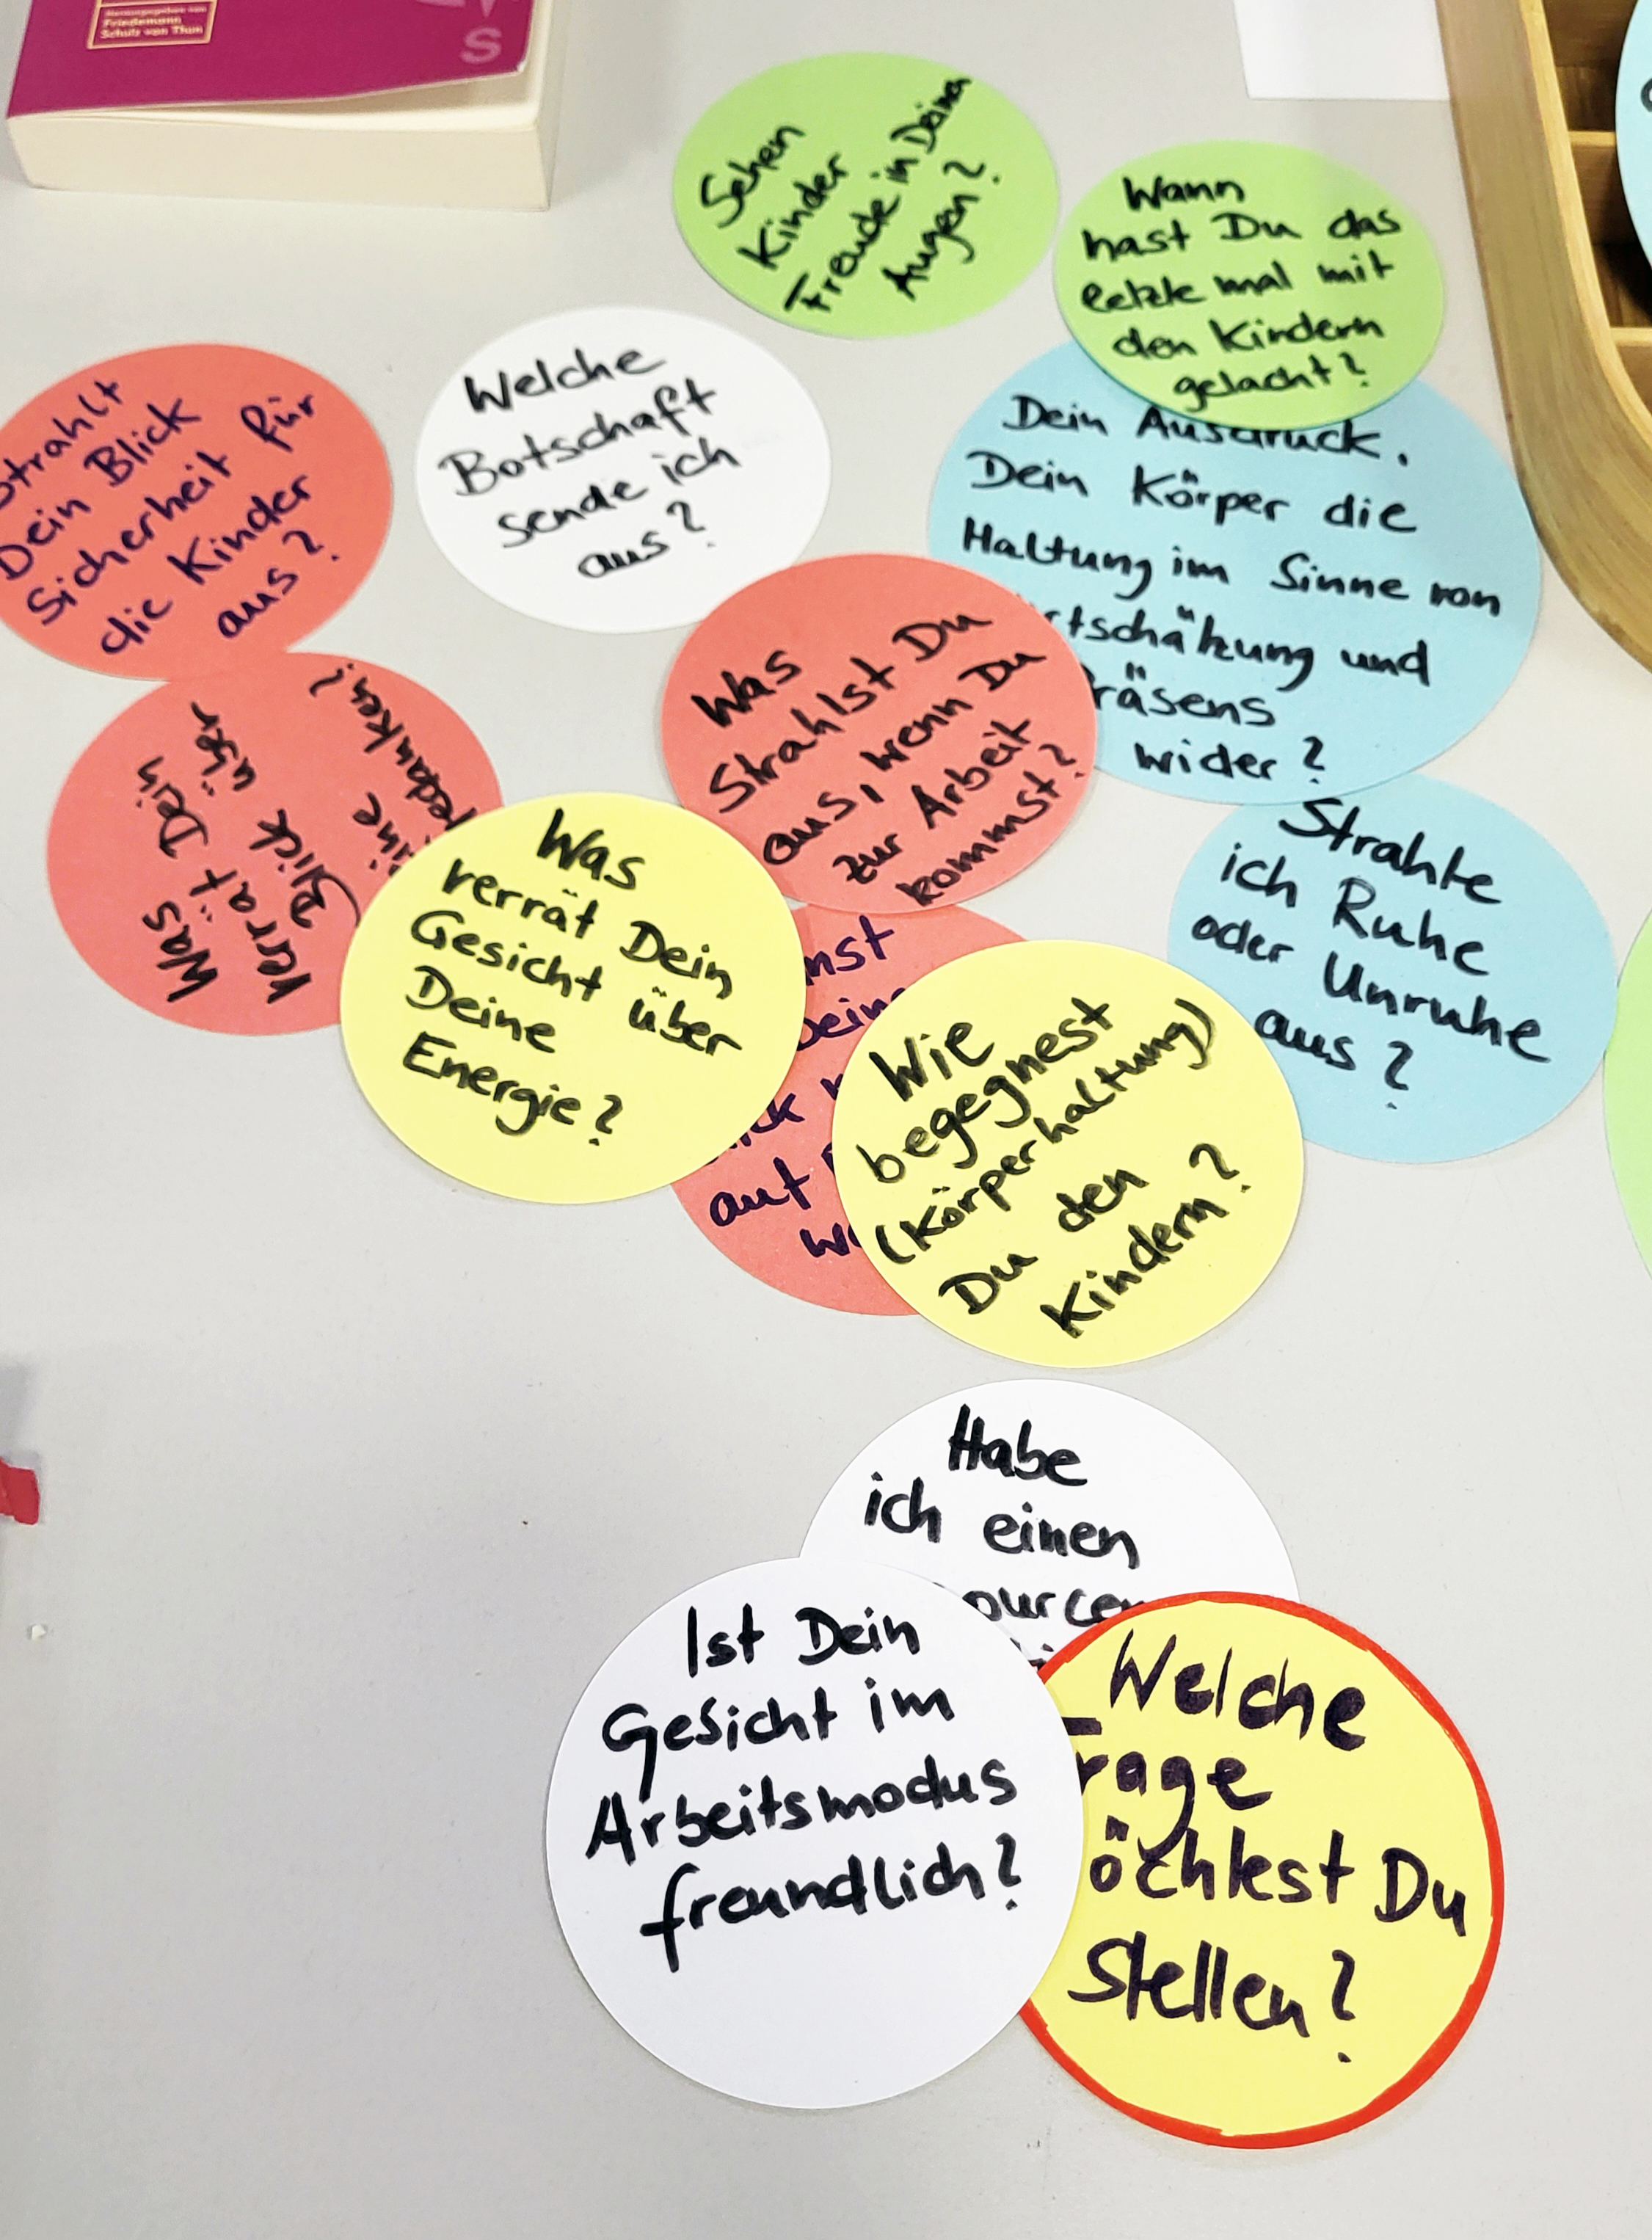 Herausgegeben von
Friedemann
Schulz von Thun
S
Sehen
Kinder
Freude in Deinen
Augen?
Wann
hast Du das
letzte mal mit
den Kindern
gelacht?
Strahlt
Dein Blick
Sicherheit für
die Kinder
aus?
Welche
Botschaft
sende ich
aus?
Dein Ausdruck.
Dein Körper die
Haltung im Sinne von
und
wider?
Was
Strahlst Du
aus, wenn Du
zur Arbeit
kommst?
Was
verrät Dein
Blick über
Was
verrät Dein
Gesicht über
Deine
Energie?
auf
Wie
begegnest
(Körperhaltung)
Du den
Kindern?
Strahle
ich Ruhe
oder Unruhe
aus?
Habe
ich einen
Ist Dein
Gesicht im
Arbeitsmodus
freundlich?
Welche
rage
öchtest Du
Stellen?